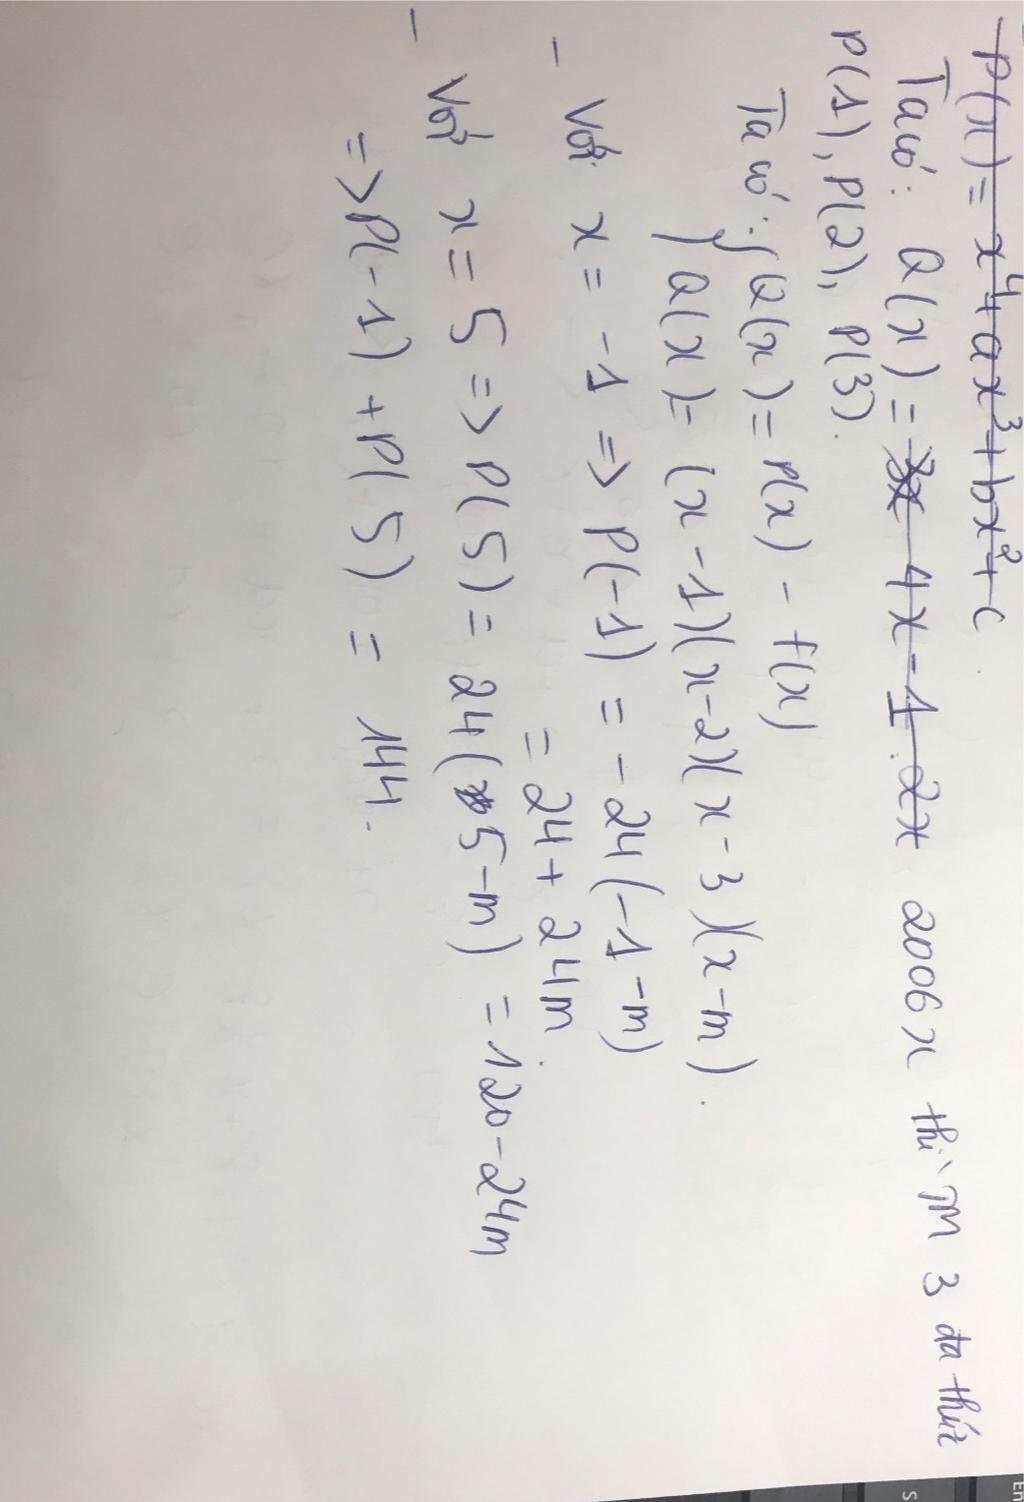 P(x) = x⁴ + ax³ + bx² + c
Ta có: Q(x) = 3x 4x - 1 2x 2006x thì TM 3 đa thức
P(1), P(2), P(3).
Ta có: { Q(x) = P(x) - f(x)
Q(x) = (x - 1)(x - 2)(x - 3)(x - m).
- Với x = -1 => P(-1) = - 24(-1 - m)
= 24 + 24m.
- Với x = 5 => P(5) = 24(5 - m) = 120 - 24m
=> P(-1) + P(5) = 144.
En
S